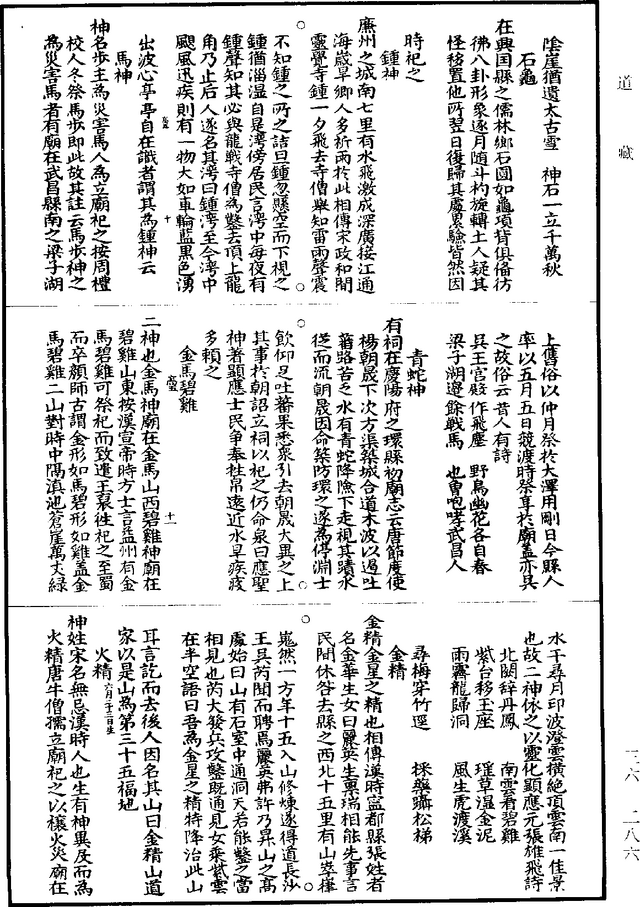 道藏
陰崖猶遺太古雪　神石一立千萬秋
石龜
在興国縣之儒林鄉石圓如龜項背俱俻彷
彿八卦形象逐月随斗杓旋轉土人疑其
怪移置他所翌日復歸其處累驗皆然因
時祀之
鍾神
㢘州之城南七里有水飛激成深廣接江通
海歲旱鄉人多祈雨於此相傳宋政和間
靈覺寺鍾一夕飛去寺僧與知雷雨聲震
不知鍾之所之詰旦鍾忽懸空而下視之
鍾猶淄湿自是湾傍居民言湾中每夜有
鍾聲知其必與龍戰寺僧為鑿去頂上龍
角乃止后人遂名其湾曰鍾湾至今湾中
颶風迅疾則有一物大如車輪藍黒色湧
出波心亭亭自在識者謂其為鍾神云
馬神
神名步主為災害馬人為立廟祀之按周禮
校人冬祭馬步即此故其註云馬步神之
為災害馬者有廟在武昌縣南之梁子湖
上舊俗以仲月祭於大澤用剛日今縣人
率以五月五日競渡時祭享於廟盖亦具
之故俗云昔人有詩
吳王宮殿作飛塵　野鳥幽花各自春
梁子湖邊餘戰馬　也曽咆哮武昌人
青蛇神
有祠在慶陽府之環縣初廟志云唐節度使
楊朝晟下次方渠築城合道木波以遏吐
蕃路苦乏水有青蛇降險下走視其蹟水
從而流朝晟因命築防環之遂為停淵士
飲仰足吐蕃果悉衆引去朝晟大異之上
其事於朝詔立祠以祀之仍命泉曰應聖
神著顯應士民争奉牲帛遠近水旱疾疫
多頼之
金馬碧雞
二神也金馬神廟在金馬山西碧雞神廟在
碧雞山東按漢宣帝時方士言益州有金
馬碧雞可祭祀而致遣王裒徃祀之至蜀
而卒顔師古謂金形如馬碧形如雞盖金
馬碧雞二山對時中隔滇池蒼崖萬丈緑
水千尋月印波澄雲横絶頂雲南一佳景
也故二神依之以靈化顯應元張雄飛詩
北闕辞丹鳳　南雲看碧雞
紫台移王座　瑶草湿金泥
雨霽龍歸洞　風生虎渡溪
尋梅穿竹逕　採藥躡松梯
金精
金精金星之精也相傳漢時寕都縣張姓者
名金華生女曰麗英生禀瑞相能先事言
民間休咎去縣之西北十五里有山峷崔
嵬然一方年十五入山修煉遂得道長沙
王吳芮聞而聘焉麗英弗許乃昇山之髙
處始曰山有石室中通洞天若能鑿之當
相見也芮大發兵攻鑿既通見女乗紫雲
在半空語曰吾為金星之精特降治此山
耳言訖而去後人因名其山曰金精山道
家以是山為第三十五福地
火精
神姓宋名無忌漢時人也生有神異及而為
火精唐牛僧孺立廟祀之以禳火災廟在
十
十一
三六　二八六